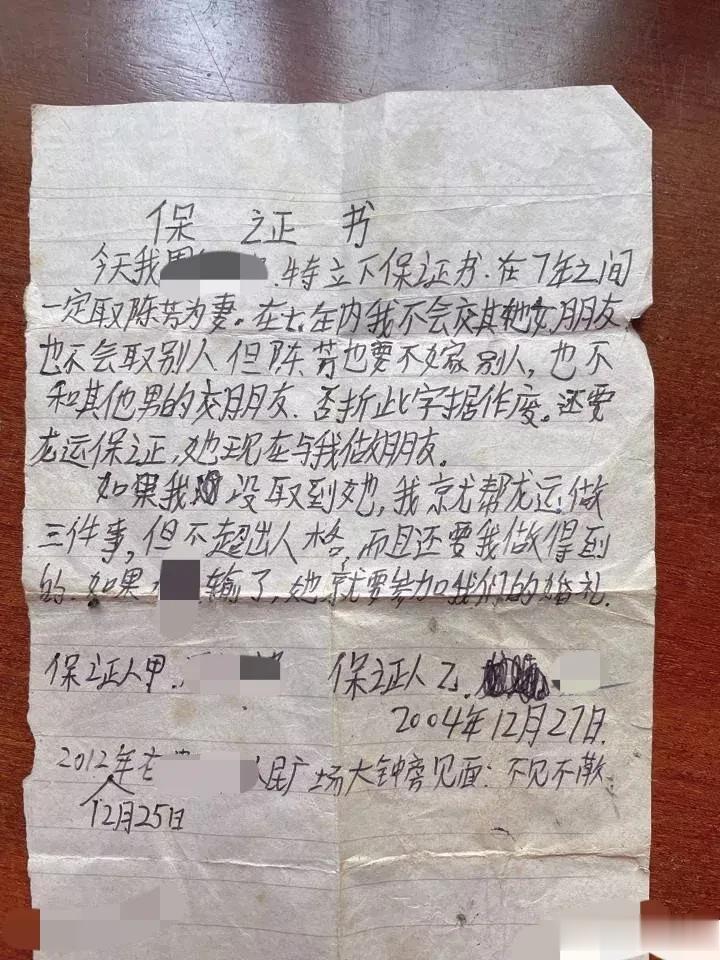 保 证 书
今天我周 特立下保证书.在7年之间
一定取陈芳为妻。在七年内我不会交其她女朋友
也不会取别人但陈芳也要不嫁别人,也不
和其他男的交朋友.否折此字据作废。还要
龙运保证,她现在与我做朋友。
如果我没取到她,我就帮龙运做
三件事,但不超出人格,而且还要我做得到
的.如果 输了,她就要参加我们的婚礼.
保证人甲. 保证人乙.
2004年12月27日.
2012年在 人民广场大钟旁见面:不见不散.
12月25日